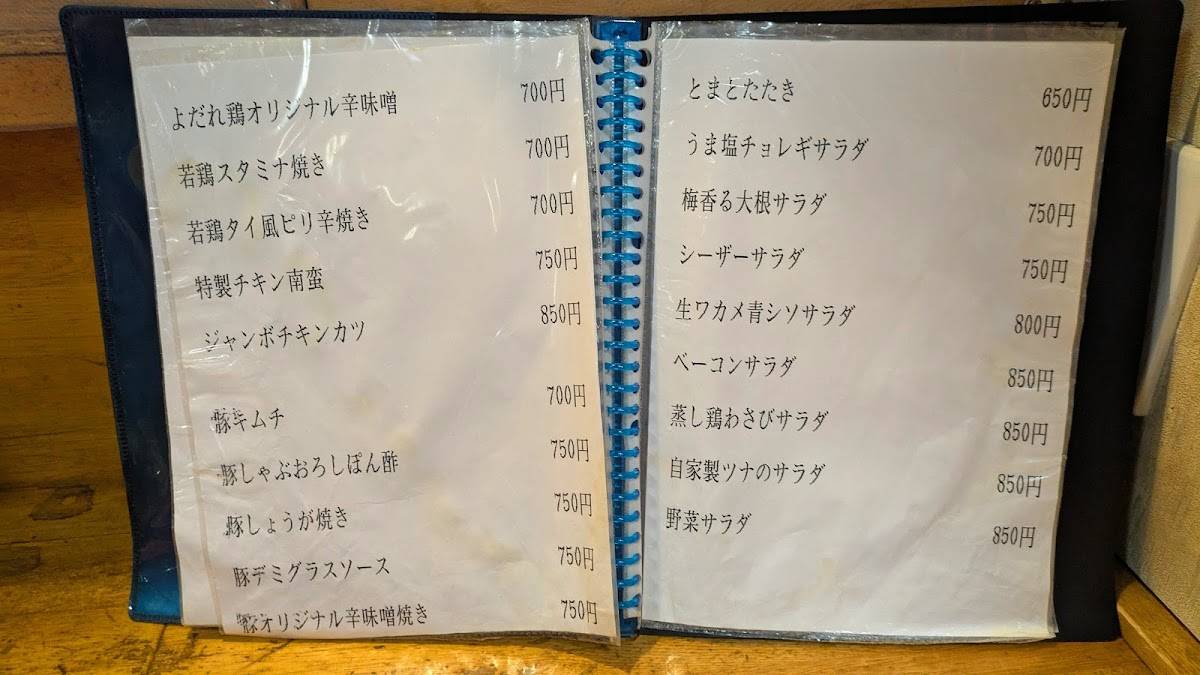 よだれ鶏オリジナル辛味噌 700円
若鶏スタミナ焼き 700円
若鶏タイ風ピリ辛焼き 700円
特製チキン南蛮 750円
ジャンボチキンカツ 850円
豚キムチ 700円
豚しゃぶおろしぽん酢 750円
豚しょうが焼き 750円
豚デミグラスソース 750円
豚オリジナル辛味噌焼き 750円
とまとたたき 650円
うま塩チョレギサラダ 700円
梅香る大根サラダ 750円
シーザーサラダ 750円
生ワカメ青シソサラダ 800円
ベーコンサラダ 850円
蒸し鶏わさびサラダ 850円
自家製ツナのサラダ 850円
野菜サラダ 850円